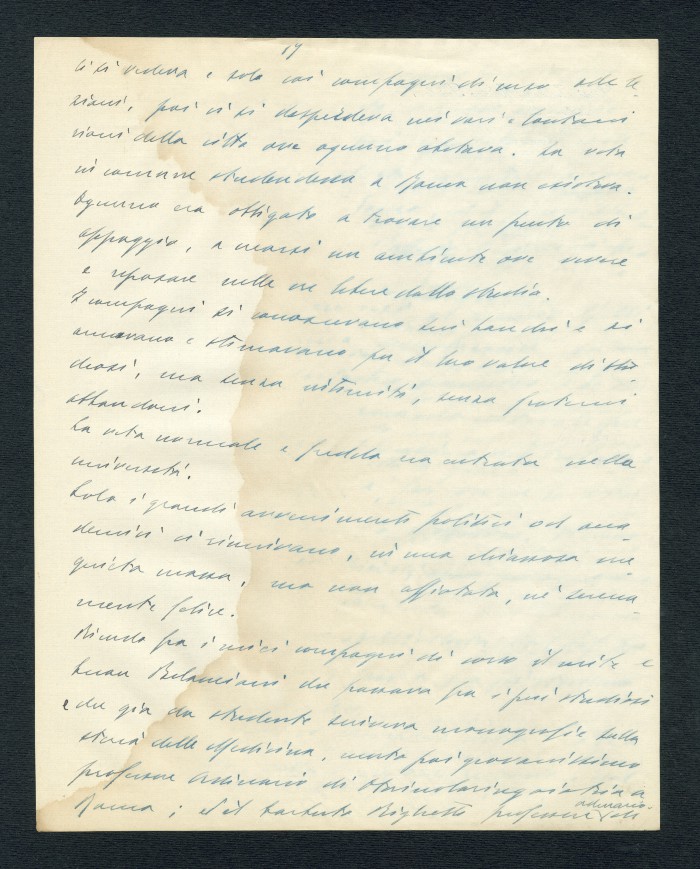 17
Ci si vedeva e solo coi compagni di corso alle le
zioni, poi ci si disperdeva nei vari e lontani
rioni della città ove ognuno abitava. La vita
in comune studentesca a Roma non esisteva.
Ognuno era obbligato a trovare un punto di
appoggio, a crearsi un ambiente ove vivere
e riposare nelle ore libere dallo studio.
I compagni si conoscevano sui banchi e si
amavano e stimavano per il loro valore di stu
diosi, ma senza intimità, senza fraterni
abbandoni.
La vita normale e fredda era entrata nella
università.
Solo i grandi avvenimenti politici od acca
demici ci riunivano, in una chiassosa ine
quieta massa, ma non affiatata, né serena-
mente felice.
Ricordo fra i miei compagni di corso il mite e
buon Bilancioni che passava fra i più studiosi
e che già da studente scriveva monografie sulla
storia della Medicina, morto poi giovanissimo
professore Ordinario di Otorinolaringoiatria a
Roma; ed il Righetti professore ordinario